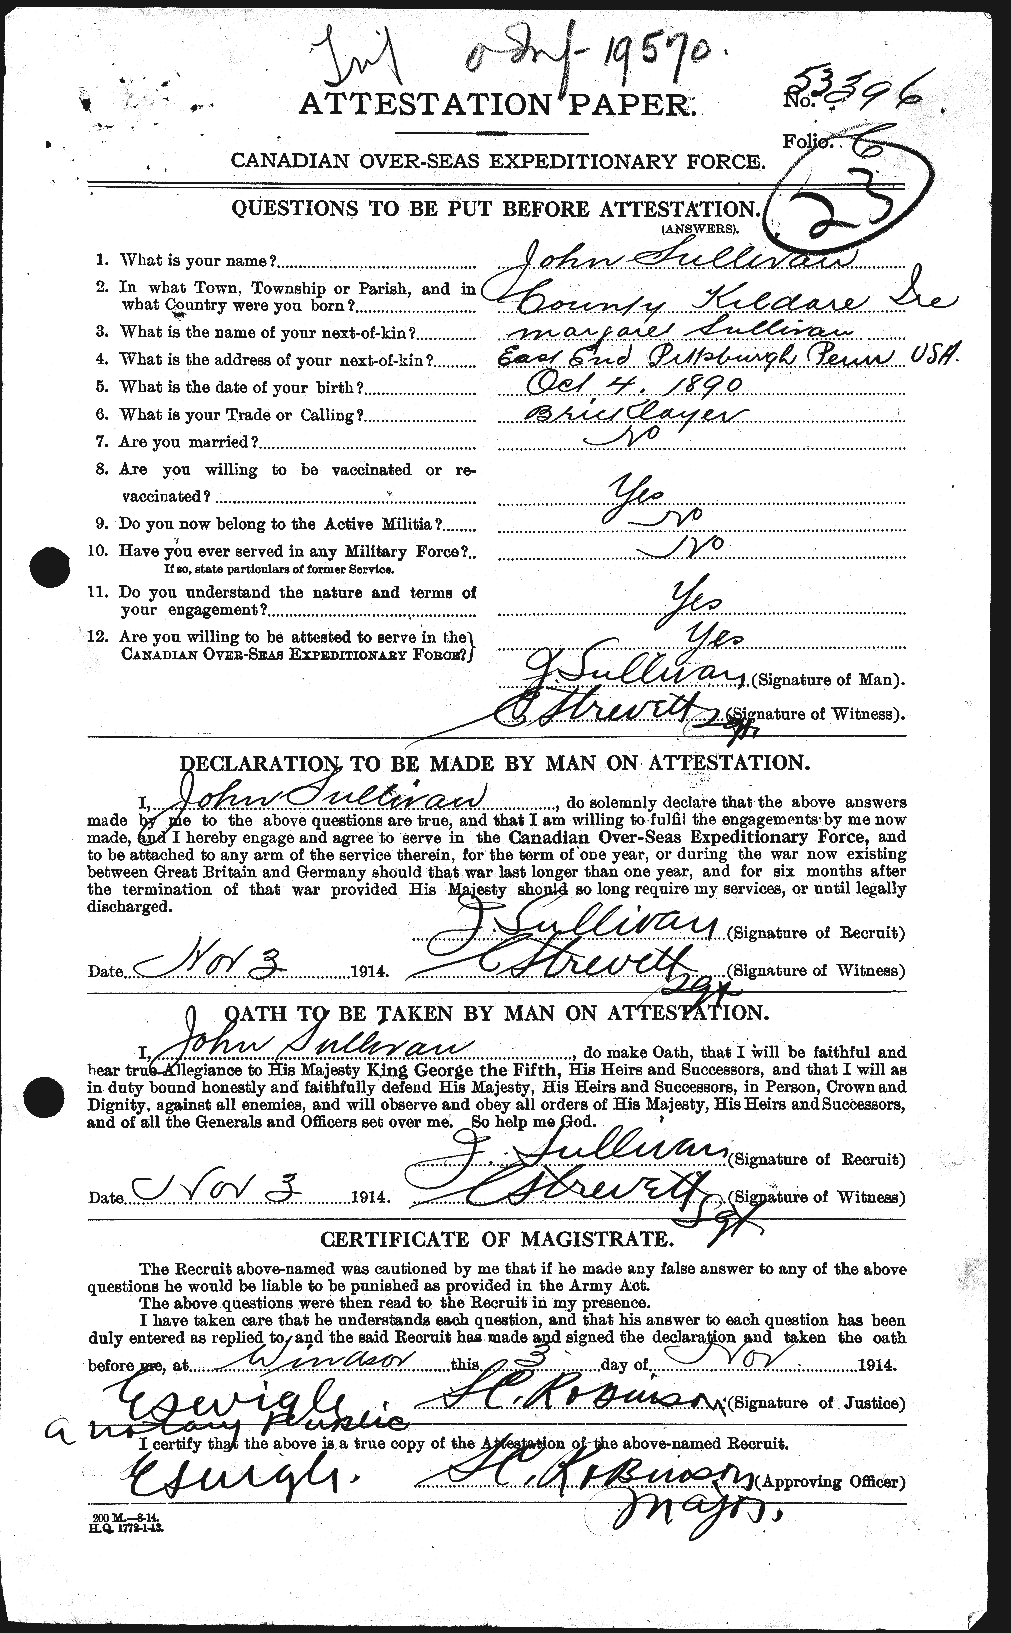 19570.
ATTESTATION PAPER.
No. 53396
Folio. 6
CANADIAN OVER-SEAS EXPEDITIONARY FORCE.
23
QUESTIONS TO BE PUT BEFORE ATTESTATION.
(ANSWERS).
1. What is your name? John Sullivan
2. In what Town, Township or Parish, and in
what Country were you born? County Kildare Ire
3. What is the name of your next-of-kin? Margaret Sullivan
4. What is the address of your next-of-kin? East End Pittsburgh Penn USA.
5. What is the date of your birth? Oct 4. 1890
6. What is your Trade or Calling? Bricklayer
7. Are you married? No
8. Are you willing to be vaccinated or re-
vaccinated? Yes
9. Do you now belong to the Active Militia? No
10. Have you ever served in any Military Force?.. No
If so, state particulars of former Service.
11. Do you understand the nature and terms of
your engagement? Yes
12. Are you willing to be attested to serve in the
CANADIAN OVER-SEAS EXPEDITIONARY FORCE? Yes
J. Sullivan (Signature of Man).
C Strevett Sgt. (Signature of Witness).
DECLARATION TO BE MADE BY MAN ON ATTESTATION.
I, John Sullivan, do solemnly declare that the above answers
made by me to the above questions are true, and that I am willing to fulfil the engagements by me now
made, and I hereby engage and agree to serve in the Canadian Over-Seas Expeditionary Force, and
to be attached to any arm of the service therein, for the term of one year, or during the war now existing
between Great Britain and Germany should that war last longer than one year, and for six months after
the termination of that war provided His Majesty should so long require my services, or until legally
discharged.
J. Sullivan (Signature of Recruit)
Date Nov 3 1914. C Strevett Sgt (Signature of Witness)
OATH TO BE TAKEN BY MAN ON ATTESTATION.
I, John Sullivan, do make Oath, that I will be faithful and
bear true Allegiance to His Majesty King George the Fifth, His Heirs and Successors, and that I will as
in duty bound honestly and faithfully defend His Majesty, His Heirs and Successors, in Person, Crown and
Dignity, against all enemies, and will observe and obey all orders of His Majesty, His Heirs and Successors,
and of all the Generals and Officers set over me. So help me God.
J. Sullivan (Signature of Recruit)
Date Nov 3 1914. C Strevett Sgt (Signature of Witness)
CERTIFICATE OF MAGISTRATE.
The Recruit above-named was cautioned by me that if he made any false answer to any of the above
questions he would be liable to be punished as provided in the Army Act.
The above questions were then read to the Recruit in my presence.
I have taken care that he understands each question, and that his answer to each question has been
duly entered as replied to, and the said Recruit has made and signed the declaration and taken the oath
before me, at Windsor this 3 day of Nov 1914.
E S Wigle S.C. Robinson (Signature of Justice)
a notary Public
I certify that the above is a true copy of the Attestation of the above-named Recruit.
E S Wigle. S.C. Robinson (Approving Officer)
Major.
200 M.—8-14.
H.Q. 1772-1-13.